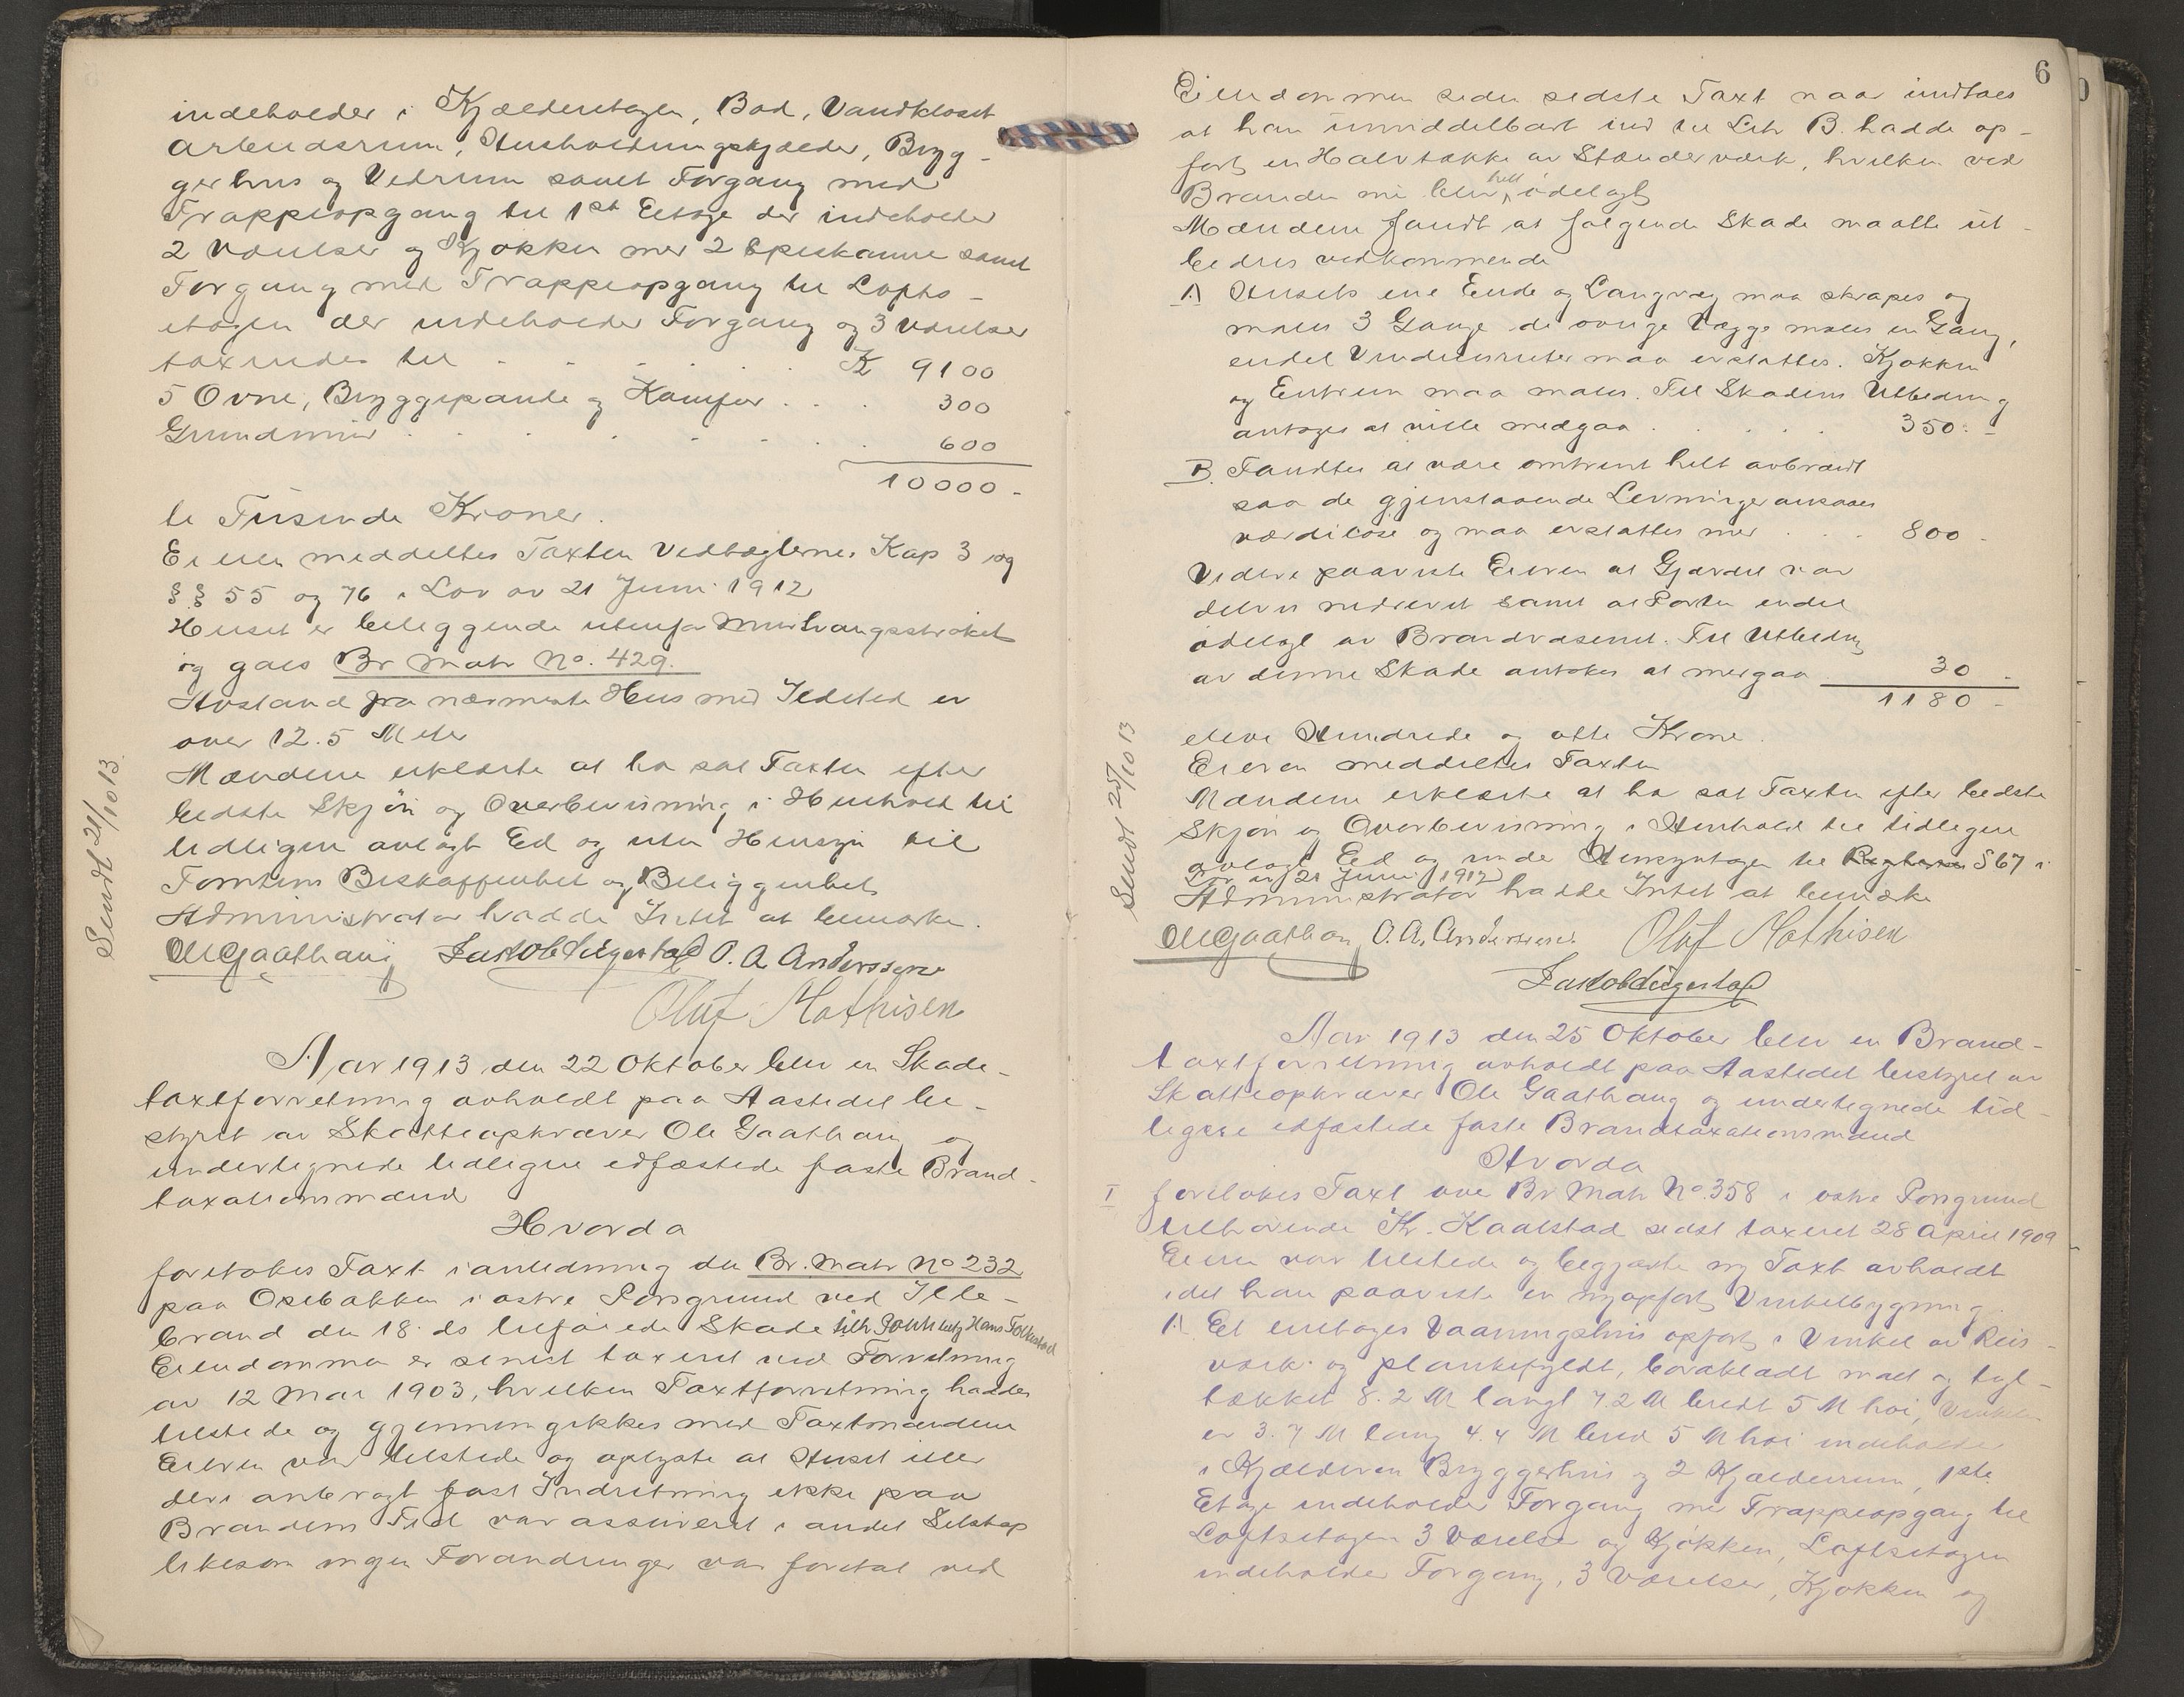 indeholder i Kjælderetagen, Bad, Vandkloset
Arbeidsrum, Husholdningskjælder, Bryg-
gerhus og Vedrum samt Forgang med
Trappeopgang til 1ste Etage der indeholder
2 Værelser og Kjøkken med 2 Spiskamre samt
Forgang med Trappeopgang til Lofts-
etagen der indeholder Forgang og 3 Værelser
taxeredes til . . . . . K 9100
5 Ovne, Bryggepande og Komfur . . . 300
Grundmur . . . . . . . 600
10000 -
ti Tusinde Kroner.
Eieren meddeltes Taxten Vedtægternes Kap 3 og
§§ 55 og 76 i Lov av 21 Juni 1912
Huset er beliggende utenfor Murtvangsstrøket
og gaes Br Matr No. 429.
Avstand fra nærmeste Hus med Ildsted er
over 12.5 Meter
Mændene erklærte at ha sat Taxten efter
bedste Skjøn og Overbevisning i Henhold til
tidligere avlagt Ed og uten Hensyn til
Tomtens Beskaffenhet og Beliggenhet
Administrator hadde Intet at bemærke.
Sendt 21/10 13.
Ole Gaathaug Jakob Liegestad O. A. Anderssen
Oluf Mathisen
Aar 1913 den 22 Oktober blev en Skade-
taxtforretning avholdt paa Aastedet be-
styret av Skatteopkræver Ole Gaathaug og
undertegnede tidligere edfæstede faste Brand-
taxationsmænd
Hvorda
foretokes Taxt i anledning den Br. Matr No 232
paa Osebakken i østre Porsgrund ved Ilde-
brand den 18. ds tilføiede Skade tilh Hans Folkestad
Eiendommen er senest taxeret ved Forretning
av 12 Mai 1903, hvilken Taxtforretning haddes
tilstede og gjennemgikkes med Taxtmændene
Eieren var tilstede og oplyste at Huset eller
deri anbragt fast Indretning ikke paa
Brandens Tid var assureret i andet Selskap
likesom ingen Forandringer var foretat ved
6
Eiendommen siden sidste Taxt naar undtaes
at han umiddelbart ind til Litr B. hadde op-
ført en Halvtække av Stænderværk, hvilken ved
Branden nu blev helt ødelagt
Mændene fandt at følgende Skade maatte ut-
bedres vedkommende
A Husets ene Ende og Langvæg maa skrapes og
males 3 Gange de øvrige Vægge males en Gang,
endel Vinduesruter maa erstattes. Kjøkken
og Entreen maa males. Til Skadens Utbedring
antages at ville medgaa . . . . . 350. -
B. Fandtes at være omtrent helt avbrændt
saa de gjenstaaende Levninger ansaaes
værdiløse og maa erstattes med . . . 800 -
Videre paaviste Eieren at Gjærdet var
delvis nedrevet samt at Porten endel
ødelagt av Brandvæsenet. Til Utbedring
av denne Skade antokes at medgaa 30 -
1180 -
elleve Hundrede og otti Kroner.
Eieren meddeltes Taxten
Mændene erklærte at ha sat Taxten efter bedste
Skjøn og Overbevisning i Henhold til tidligere
avlagt Ed og under Hensyntagen til § 67 i
Lov av 21 Juni 1912
Administrator hadde Intet at bemærke
Sendt 25/10 13
Ole Gaathaug O. A. Anderssen. Oluf Mathisen
Jakob Liegestad
Aar 1913 den 25 Oktober blev en Brand-
taxtforretning avholdt paa Aastedet bestyret av
Skatteopkræver Ole Gaathaug og undertegnede tid-
ligere edfæstede faste Brandtaxationsmænd
Hvorda
I foretokes Taxt over Br Matr No. 358 i østre Porsgrund
tilhørende Kr. Kaalstad sidst taxeret 28 April 1909
Eieren var tilstede og begjærte ny Taxt avholdt
idet han paaviste en nyopført Vinkelbygning.
A Et enetages Vaaningshus opført i Vinkel av Reis-
værk og plankefyldt, bordklædt malt og tegl-
tækket 8.2 M langt 7.2 M bredt 5 M høi, Vinkelen
er 3.7 M lang 4.4 M bred 5 M høi indeholder
i Kjælderen Bryggerhus og 2 Kjælderrum, 1ste
Etage indeholder Forgang med Trappeopgang til
Loftsetagen 3 Værelser og Kjøkken, Loftsetagen
indeholder Forgang, 3 Værelser, Kjøkken og